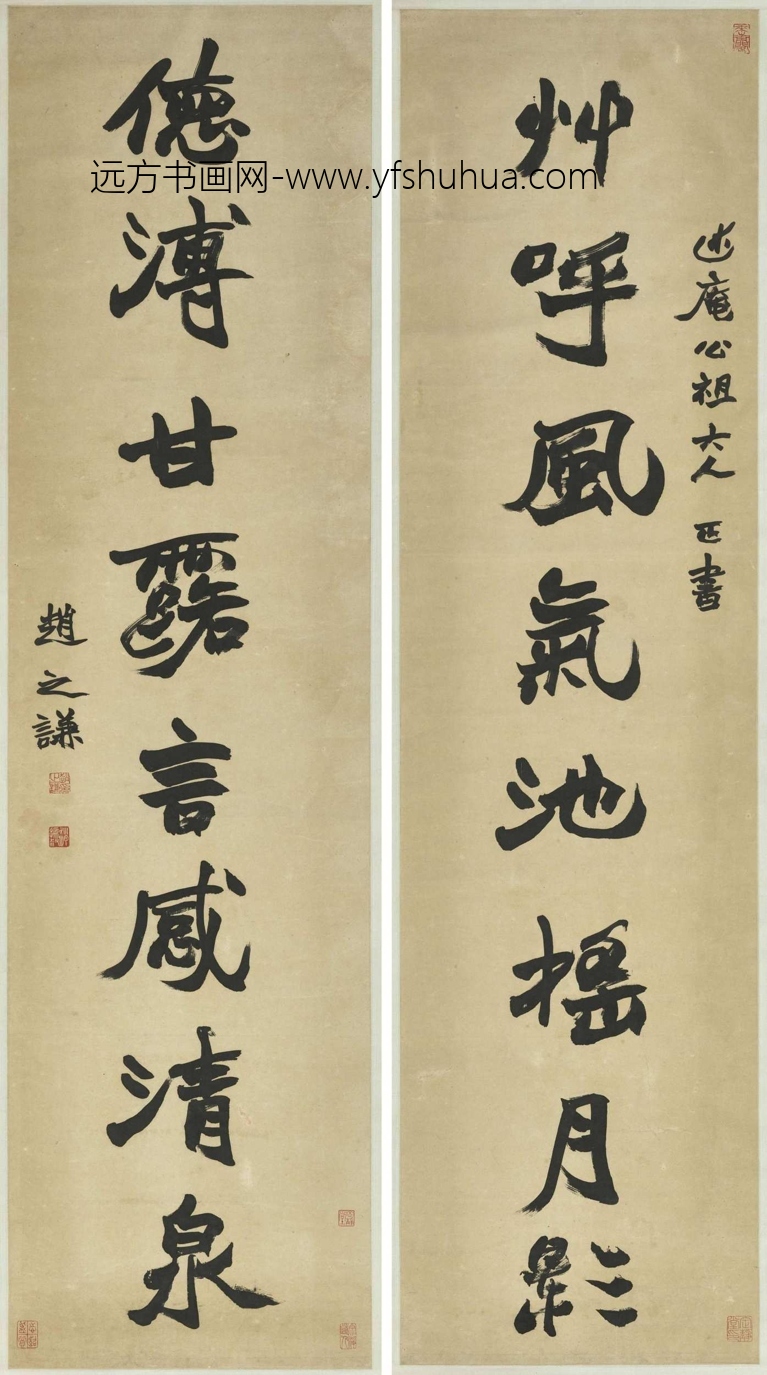 述庵公祖大人正書
艸呼風氣池搖月影
德溥甘露言感清泉
趙之謙
远方书画网-www.yfshuhua.com